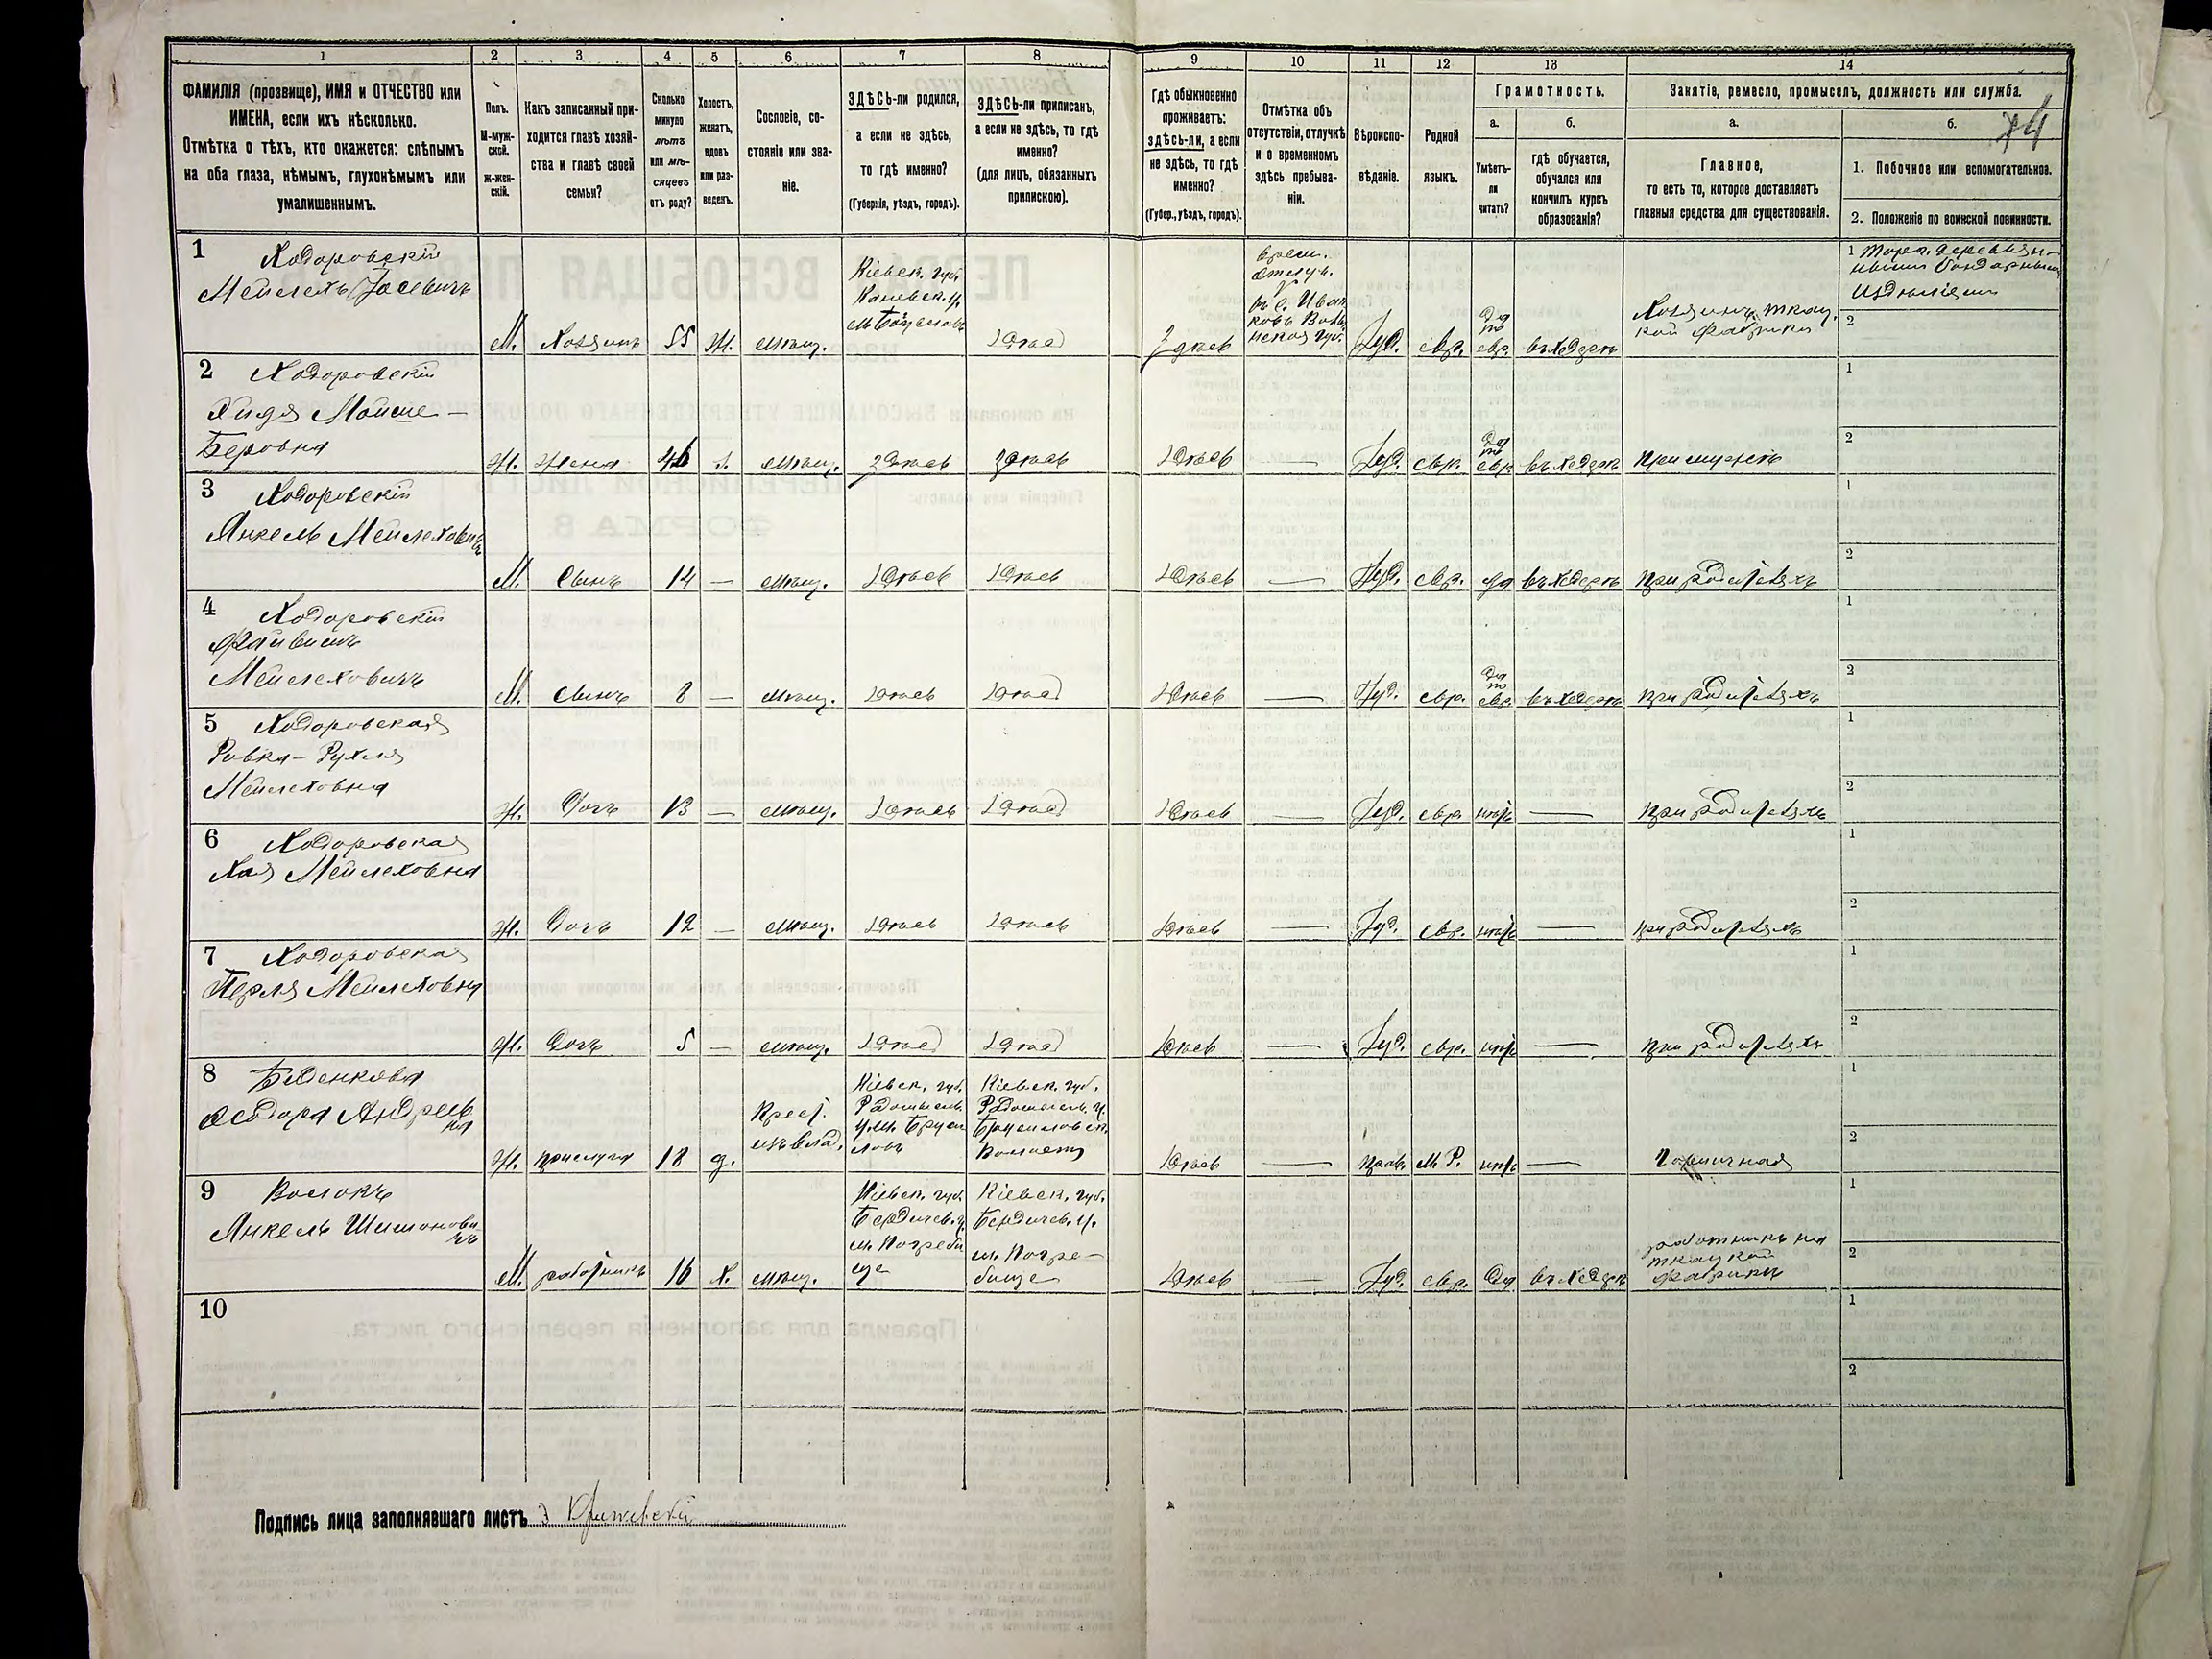 1 2 3 4 5 6 7 8 9 10 11 12 13 14
ФАМИЛІЯ (прозвище), ИМЯ и ОТЧЕСТВО или
ИМЕНА, если ихъ нѣсколько.
Отмѣтка о тѣхъ, кто окажется: слѣпымъ
на оба глаза, нѣмымъ, глухонѣмымъ или
умалишеннымъ.
Полъ.
М-муж-
ской.
ж-жен-
скій.
Какъ записанный при-
ходится главѣ хозяй-
ства и главѣ своей
семьи?
Сколько
минуло
лѣтъ
или мѣ-
сяцевъ
отъ роду?
Холостъ,
женатъ,
вдовъ
или раз-
веденъ.
Сословіе, со-
стояніе или зва-
ніе.
ЗДѢСЬ-ли родился,
а если не здѣсь,
то гдѣ именно?
(Губернія, уѣздъ, городъ).
ЗДѢСЬ-ли приписанъ,
а если не здѣсь, то гдѣ
именно?
(для лицъ, обязанныхъ
припискою).
Гдѣ обыкновенно
проживаетъ:
здѣсь-ли, а если
не здѣсь, то гдѣ
именно?
(Губер., уѣздъ, городъ).
Отмѣтка объ
отсутствіи, отлучкѣ
и о временномъ
здѣсь пребыва-
ніи.
Вѣроиспо-
вѣданіе.
Родной
языкъ.
Грамотность.
а.
Умѣетъ-
ли
читать?
б.
гдѣ обучается,
обучался или
кончилъ курсъ
образованія?
Занятіе, ремесло, промыселъ, должность или служба.
а.
Главное,
то есть то, которое доставляетъ
главныя средства для существованія.
б.
1. Побочное или вспомогательное.
2. Положеніе по воинской повинности.
1 Ходоровскій
Мейлехъ Іосевичъ
М. Хозяинъ 55 ж. мѣщ.
Кіевск. губ.
Каневск. у.
здѣсь
здѣсь
врем.
отлуч.
Іуд. евр.
да
по
евр. въ хедерѣ
Хозяинъ ткац.
кой фабрики
1 Торг. деревян-
ными бондарными
издѣліями
2
2 Ходоровскій
Хидя Мойше-
Беровна
Ж. Жена 46 з. мѣщ. здѣсь здѣсь здѣсь — Іуд. евр.
да
по
евр. въ хедерѣ при мужѣ
1
2
3 Ходоровскій
Янкель Мейлеховичъ
М. Сынъ 14 — мѣщ. здѣсь здѣсь здѣсь — Іуд. евр. да въ хедерѣ при родителяхъ
1
2
4 Ходоровскій
Файвишъ
Мейлеховичъ
М. Сынъ 8 — мѣщ. здѣсь здѣсь здѣсь — Іуд. евр.
да
по
евр. въ хедерѣ при родителяхъ
1
2
5 Ходоровская
Ривка-Рухля
Мейлеховна
Ж. Дочь 13 — мѣщ. здѣсь здѣсь здѣсь — Іуд. евр. нѣтъ — при родителяхъ
1
2
6 Ходоровская
Хая Мейлеховна
Ж. Дочь 12 — мѣщ. здѣсь здѣсь здѣсь — Іуд. евр. нѣтъ — при родителяхъ
1
2
7 Ходоровская
Перля Мейлеховна
Ж. Дочь 5 — мѣщ. здѣсь здѣсь здѣсь — Іуд. евр. нѣтъ — при родителяхъ
1
2
8 Беденкова
Ѳеодора Андреев
на
Ж. прислуга 18 д.
Крест.
изъ влад.
Кіевск. губ.
Радомысль.
у. м. Бруси
ловъ
Кіевск. губ.
Радомысль. у.
Брусиловск.
волости
здѣсь — прав. М. Р. нѣтъ — Горничная
1
2
9 Волокъ
Янкель Шимонови
чъ
М. работникъ 16 х. мѣщ.
Кіевск. губ.
Бердичев. у.
м. Погреби
ще
Кіевск. губ.
Бердичев. у.
м. Погре-
бище
здѣсь — Іуд. евр. да въ хедерѣ
работникъ на
ткацкой
фабрикѣ
1
2
10
1
2
Подпись лица заполнявшаго листъ